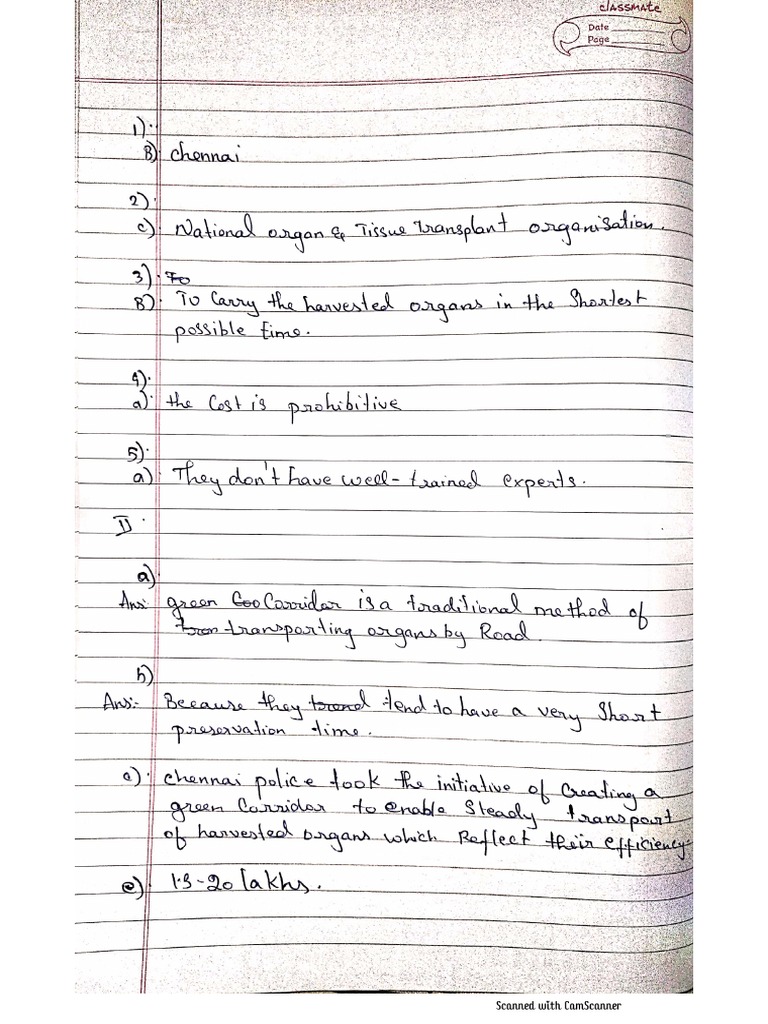 classmate
Date
Page
1).
B) Chennai
2).
c) National organ & Tissue Transplant organisation.
3). To
B). To Carry the harvested organs in the Shortest
possible time.
4).
a). the Cost is prohibitive
5).
a) They don't have well-trained experts.
II.
a)
Ans: green Coo Corridar is a traditional method of
tron transporting organs by Road.
b)
Ans:- Because they trend tend to have a very Short
preservation time.
c). Chennai police took the initiative of Creating a
green Corridar to enable Steady transport
of harvested organs which Reflect their efficiency.
e) 1.3-20 lakhs.
Scanned with CamScanner